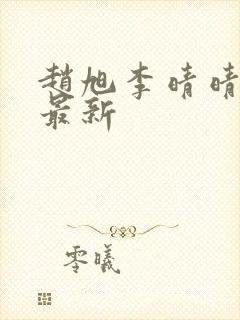 趙旭李晴晴
最新
零曦